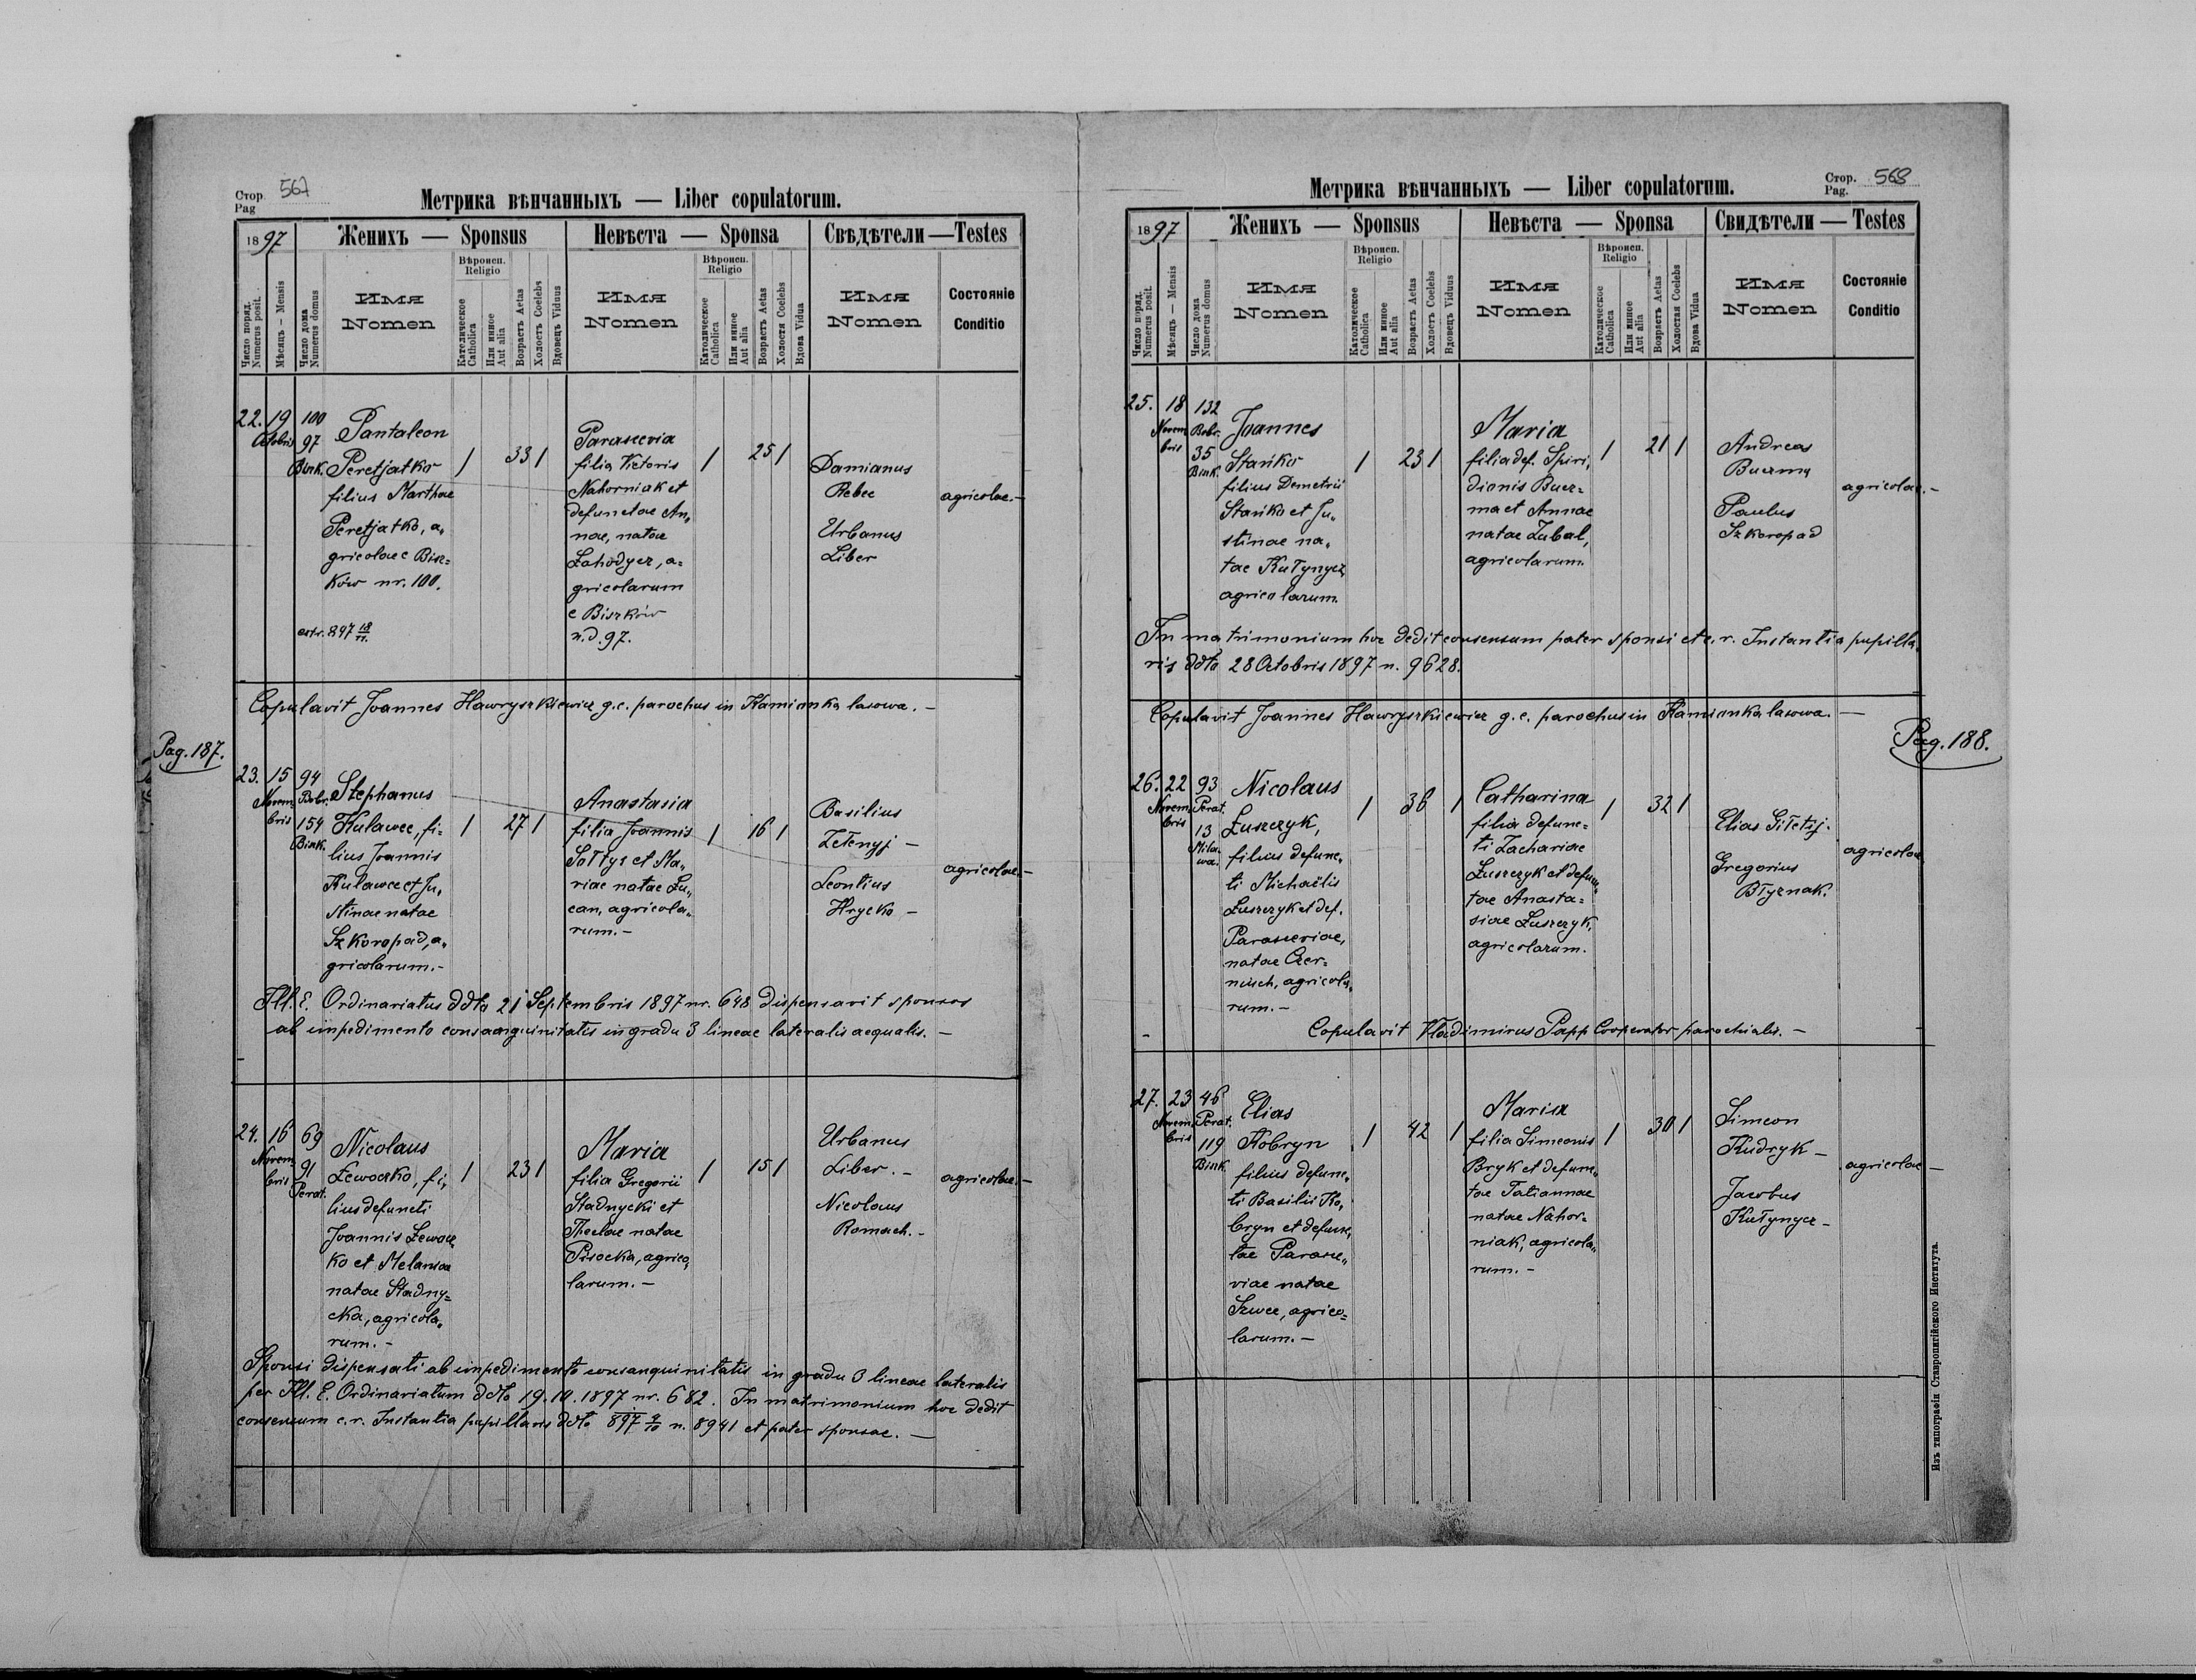 Стор. Pag 567
Метрика вѣнчанныхъ — Liber copulatorum.
1897
Женихъ — Sponsus
Невѣста — Sponsa
Свѣдѣтели — Testes
Число поряд. Numerus posit.
Мѣсяцъ — Mensis
Число дома Numerus domus
Имя Nomen
Вѣроисп. Religio
Католическое Catholica
Или инное Aut alia
Возрастъ Aetas
Холостъ Coelebs
Вдовецъ Viduus
Имя Nomen
Вѣроисп. Religio
Католическое Catholica
Или инное Aut alia
Возрастъ Aetas
Холостая Coelebs
Вдова Vidua
Имя Nomen
Состояніе Conditio
22. 19 Octobris
100
97
Bisk.
Pantaleon
Peretjatko
filius Marthae
Peretjatko, a„
gricolae e Bisz=
ków nr. 100.
extr. 897 18/11.
1 33 1
Parascevia
filia Victoris
Nahorniak et
defunctae An„
nae, natae
Lahodycz, a=
gricolarum
e Biszków
n. d. 97.
1 25 1
Damianus
Rebec
Urbanus
Liber
agricolae. -
Copulavit Joannes Hawryszkiewicz g. c. parochus in Kamionka lasowa. -
Pag. 187.
23. 15 Novem bris
94
Bobr.
154
Bink.
Stephanus
Kulawec, fi=
lius Joannis
Kulawec et Ju„
stinae natae
Szkoropad, a„
gricolarum. -
1 27 1
Anastasia
filia Joannis
Sołtys et Ma„
riae natae Lu„
can, agricola„
rum. -
1 16 1
Basilius
Zełenyj -
Leontius
Hrycko -
agricolae. -
Ill. E. Ordinariatus ddto 21 Septembris 1897 nr. 648 dispensavit sponsos
ab impedimento consanguinitatis in gradu 3 lineae lateralis aequalis. -
24. 16 Novem bris
69
91
Perat.
Nicolaus
Lewoczko, fi„
lius defuncti
Joannis Lewocz
ko et Melaniae
natae Stadny=
cka, agricola„
rum. -
1 23 1
Maria
filia Gregorii
Stadnycki et
Theclae natae
Pisocka, agrico„
larum. -
1 15 1
Urbanus
Liber. -
Nicolaus
Romach. -
agricolae. -
Sponsi dispensati ab impedimento consanguinitatis in gradu 3 lineae lateralis
per Ill. E. Ordinariatum ddto 19.10.1897 nr. 682. In matrimonium hoc dedit
consensum c. r. Instantia pupillaris ddto 897 9/10 n. 8941 et pater sponsae. —
Метрика вѣнчанныхъ — Liber copulatorum.
Стор. Pag. 568
1897
Женихъ — Sponsus
Невѣста — Sponsa
Свидѣтели — Testes
Число поряд. Numerus posit.
Мѣсяцъ — Mensis
Число дома Numerus domus
Имя Nomen
Вѣроисп. Religio
Католическое Catholica
Или инное Aut alia
Возрастъ Aetas
Холостъ Coelebs
Вдовецъ Viduus
Имя Nomen
Вѣроисп. Religio
Католическое Catholica
Или инное Aut alia
Возрастъ Aetas
Холостая Coelebs
Вдова Vidua
Имя Nomen
Состояніе Conditio
25. 18 Novem bris
132
Bobr.
35
Bink.
Joannes
Stańko
filius Demetrii
Stańko et Ju„
stinae na„
tae Kułynycz
agricolarum.
1 23 1
Maria
filia def. Spiri„
dionis Bucz=
ma et Annae
natae Zubal,
agricolarum.
1 21 1
Andreas
Buczma
Paulus
Szkoropad
agricolae. -
In matrimonium hoc dedit consensum pater sponsi et c. r. Instantia pupilla„
ris ddto 28 Octobris 1897 n. 9628.
Copulavit Joannes Hawryszkiewicz g. c. parochus in Kamionka lasowa. —
Pag. 188.
26. 22 Novem bris
93
Perat.
13
Nicolaus
Łuszczyk,
filius defunc„
ti Michaëlis
Łuszczyk et def.
Parasceviae,
natae Czer=
niuch, agricola„
rum. -
1 36 1
Catharina
filia defunc=
ti Zachariae
Łuszczyk et defunc„
tae Anasta=
siae Łuszczyk,
agricolarum.
1 32 1
Elias Giłetij.
Gregorius
Błyznak.
agricolae
Copulavit Vladimirus Papp Cooperator parochialis. -
27. 23 Novem bris
46
Perat.
119
Bink.
Elias
Kobryn
filius defunc„
ti Basilii Ko„
bryn et defunc„
tae Parasce„
viae natae
Szwec, agrico=
larum. -
1 42 1
Maria
filia Simeonis
Bryk et defunc„
tae Tatiannae
natae Nahor=
niak, agricola„
rum. -
1 30 1
Simeon
Kudryk -
Jacobus
Kułynycz -
agricolae -
Изъ типографіи Ставропигійского Института.